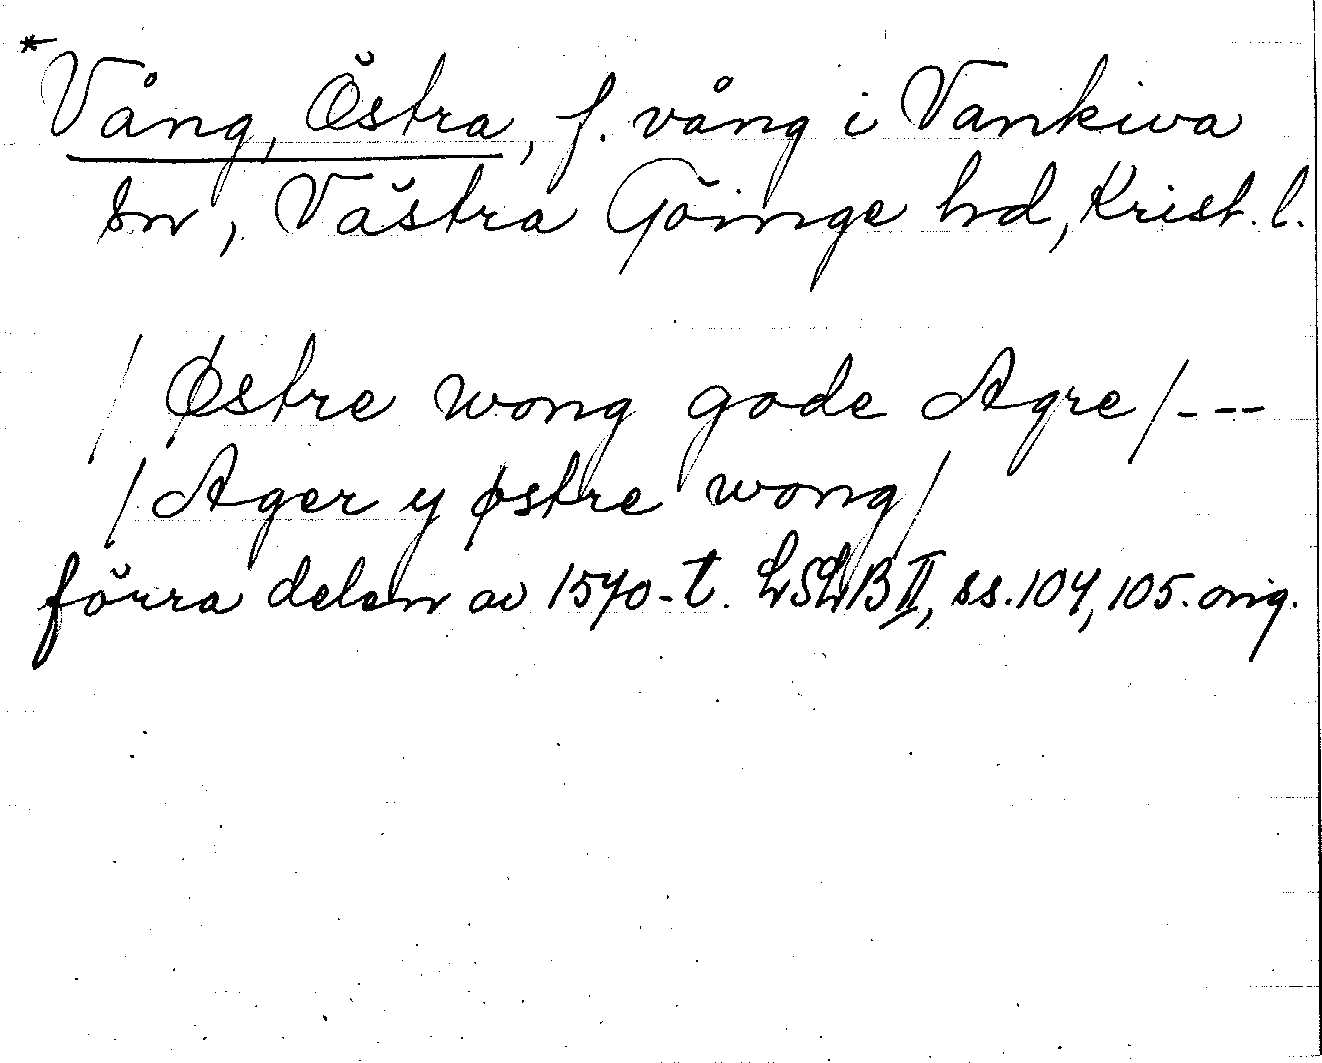 *Vång, Östra, f. vång i Vankiva
sn, Västra Göinge hd, Krist. l.
/ Østre wong gode Agre / ---
/ Ager y østre wong /
förra delen av 1570-t. LSLB II, ss. 104, 105. orig.